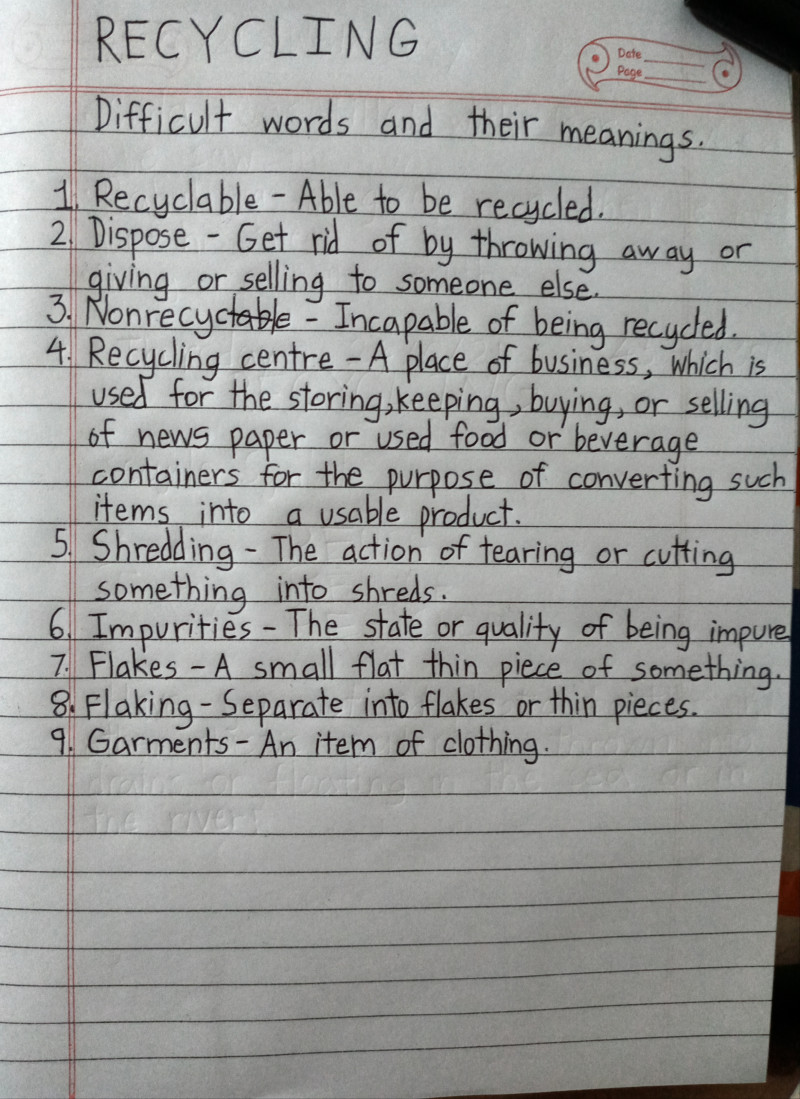 RECYCLING
Date
Page
Difficult words and their meanings.
1. Recyclable - Able to be recycled.
2. Dispose - Get rid of by throwing away or
giving or selling to someone else.
3. Nonrecyctable - Incapable of being recycled.
4. Recycling centre - A place of business, which is
used for the storing, keeping, buying, or selling
of news paper or used food or beverage
containers for the purpose of converting such
items into a usable product.
5. Shredding - The action of tearing or cutting
something into shreds.
6. Impurities - The state or quality of being impure
7. Flakes - A small flat thin piece of something.
8. Flaking - Separate into flakes or thin pieces.
9. Garments - An item of clothing.
drains or floating in the sea or in
the river